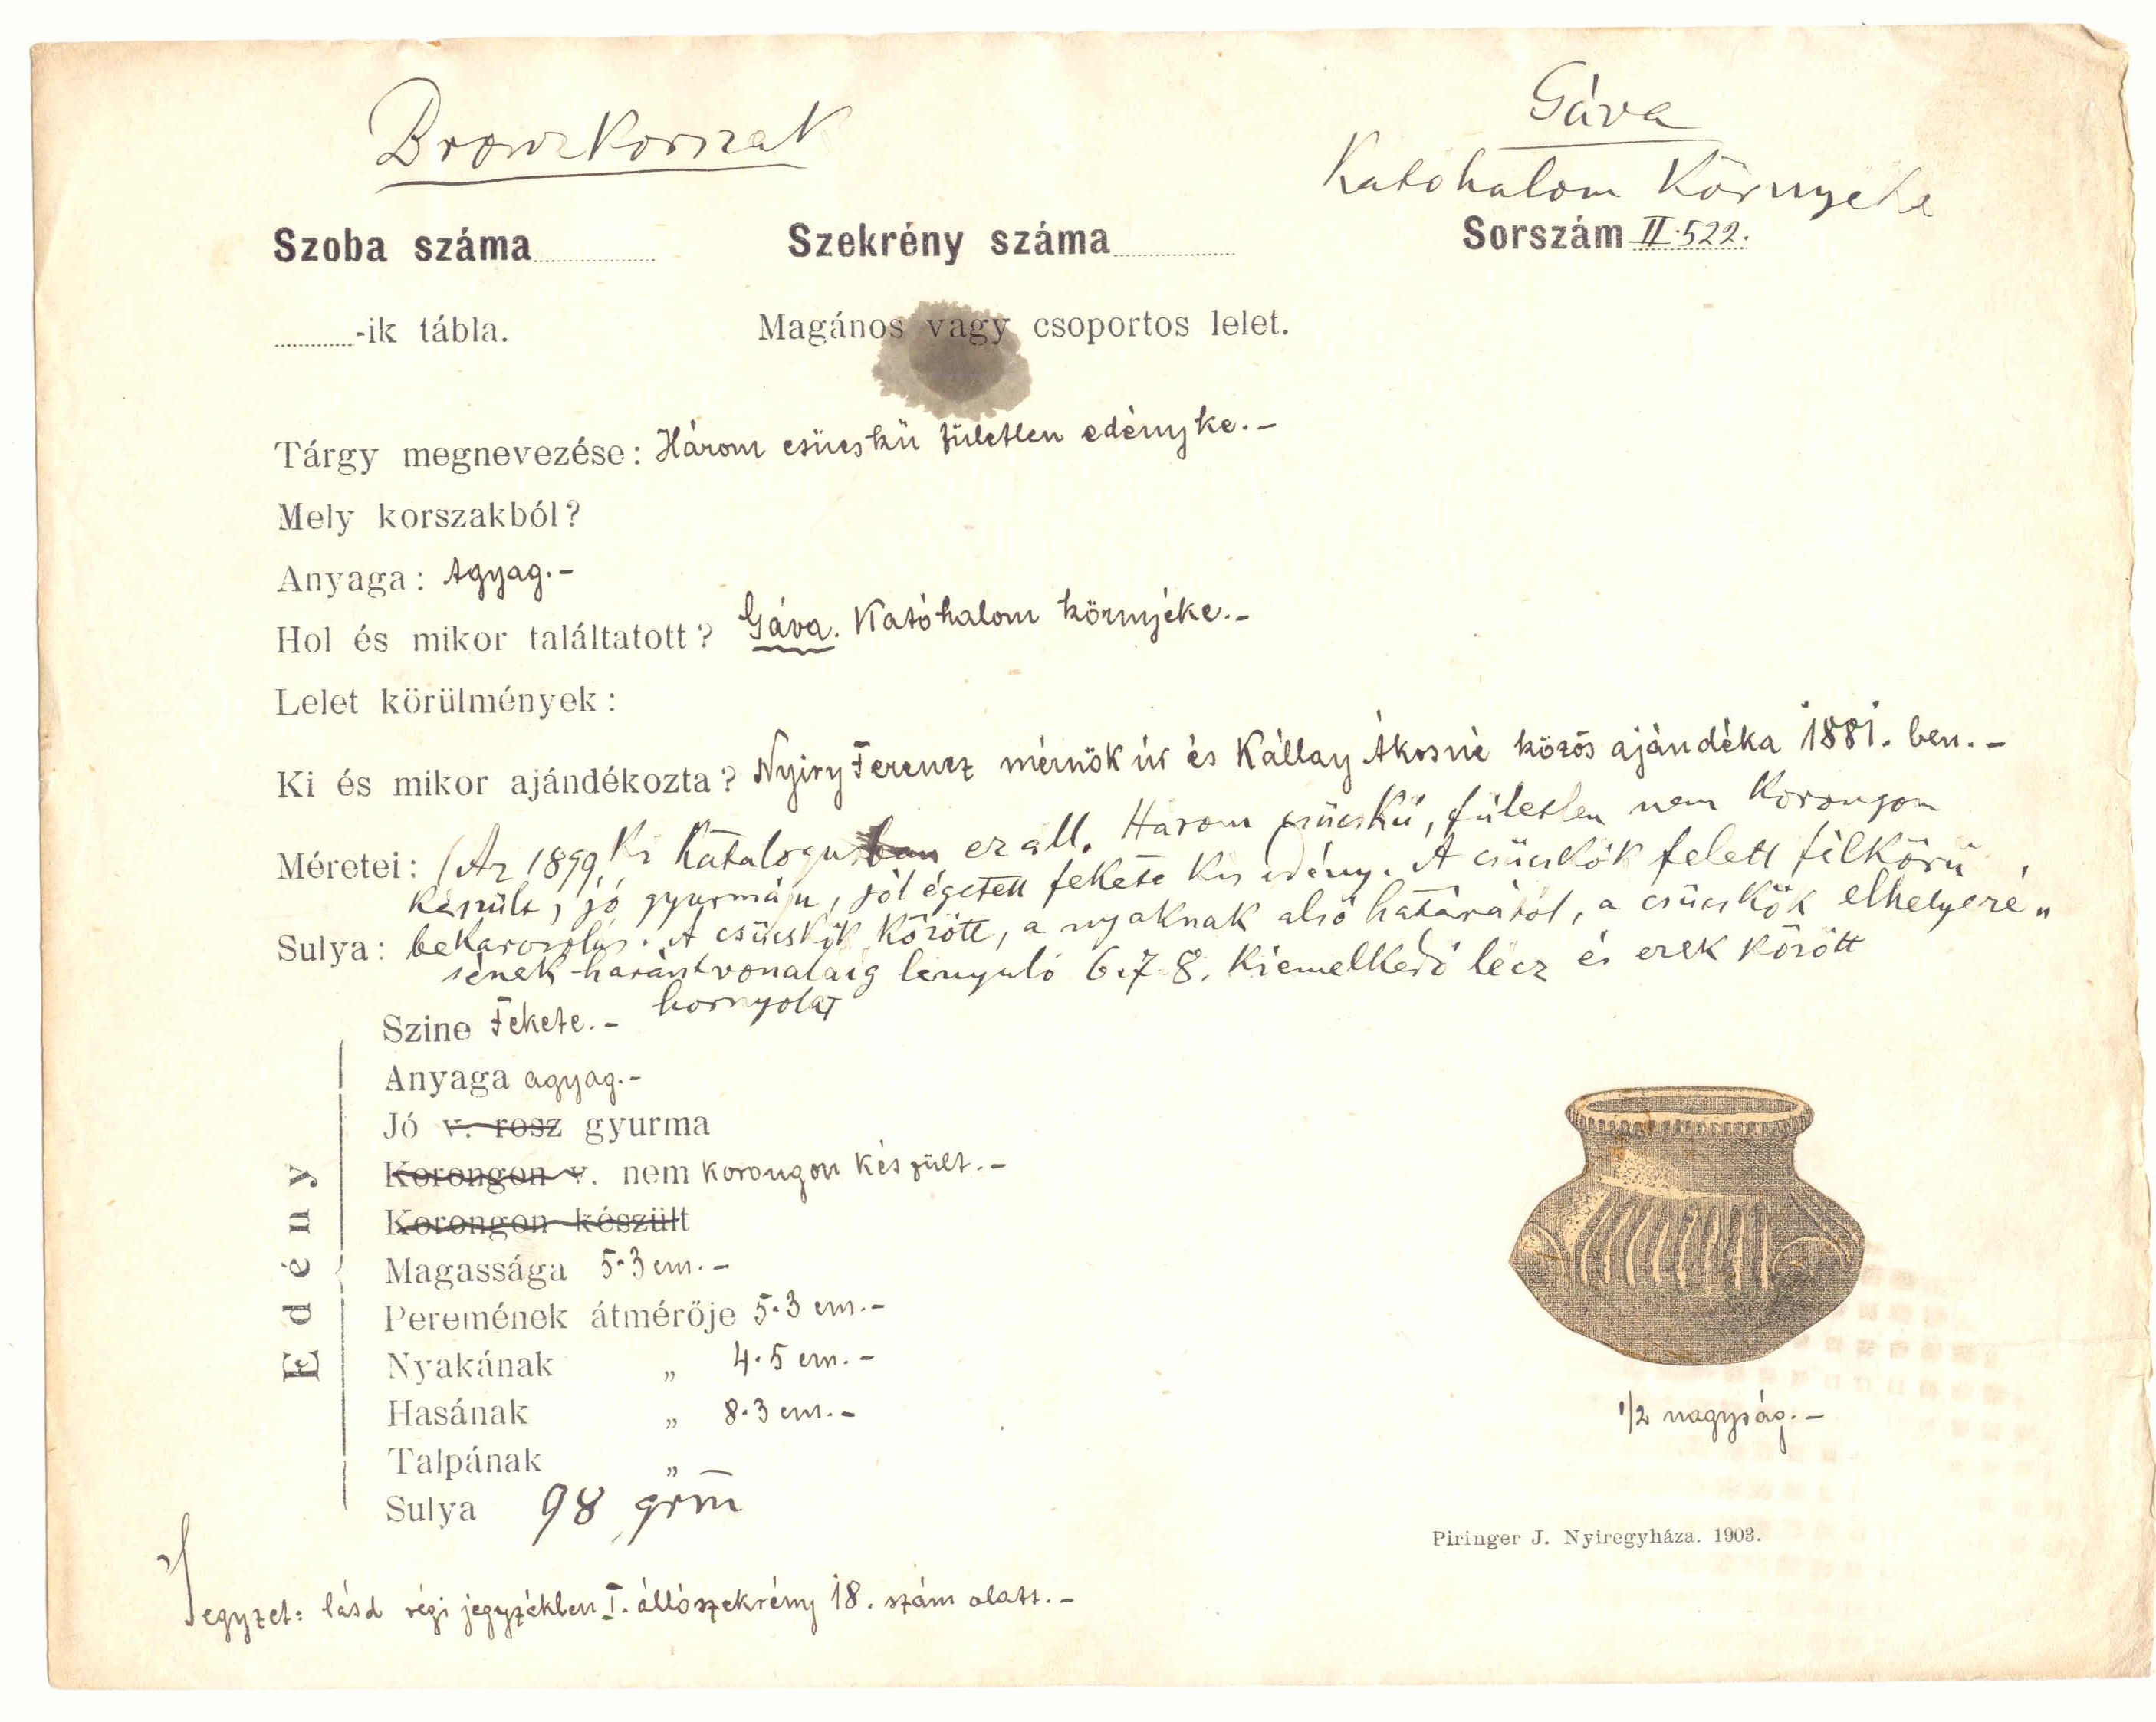 Bronzkorszak
Gáva
Katóhalom környéke
Szoba száma
Szekrény száma
Sorszám II.522.
-ik tábla.
Magános vagy csoportos lelet.
Tárgy megnevezése: Három csücskü fületlen edényke.-
Mely korszakból?
Anyaga: Agyag.-
Hol és mikor találtatott? Gáva. Katóhalom környéke.-
Lelet körülmények:
Ki és mikor ajándékozta? Nyiry Ferencz mérnök úr és Kállay Ákosné közös ajándéka 1881. ben.-
Méretei: (Az 1899 Ki Katalogusban ez áll. Három csücskü, fületlen nem korongon
készült, jó gyurmáju, jól égetett fekete kis edény. A csücskök felett félkörü
Sulya: bekarcolás. A csücskök között, a nyaknak alsó határától, a csücskök elhelyezé„
sének haránt vonaláig lenyuló 6.7.8. kiemelkedő lécz és ezek között
hornyolat
Szine Fekete.-
Anyaga agyag.-
Jó v. rosz gyurma
Korongon v. nem korongon készült.-
Korongon készült
Magassága 5.3 cm.-
Peremének átmérője 5.3 cm.-
Nyakának „ 4.5 cm.-
Hasának „ 8.3 cm.-
Talpának „
Sulya 98 grm
Edény
1/2 nagyság.-
Piringer J. Nyiregyháza. 1903.
Jegyzet: lásd régi jegyzékben I. állószekrény 18. szám alatt.-